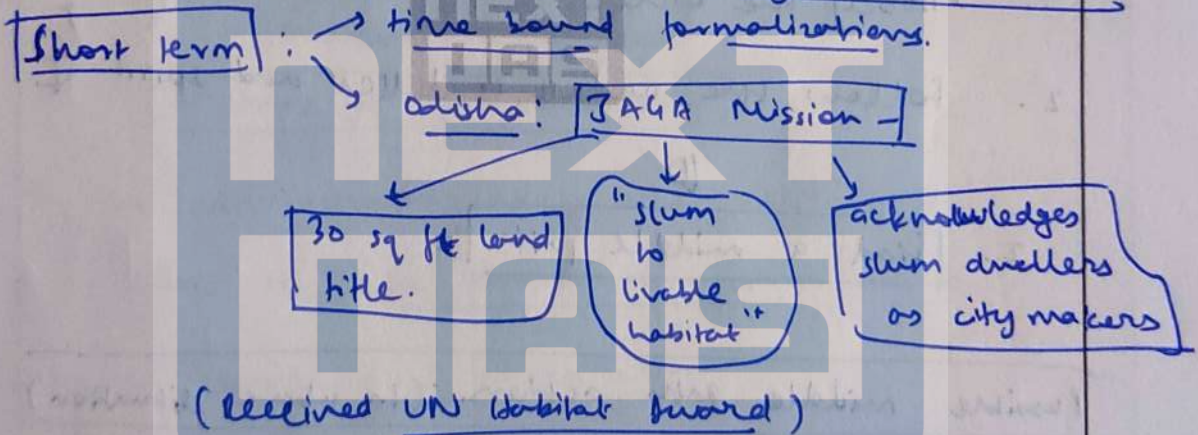 Short term : → time bound formalizations.
→ Odisha: JAGA Mission -
30 sq ft land title.
"slum
to
livable
habitat"
acknowledges
slum dwellers
as city makers
(Received UN Habitat Award)
NEXT
IAS
NEXT
IAS